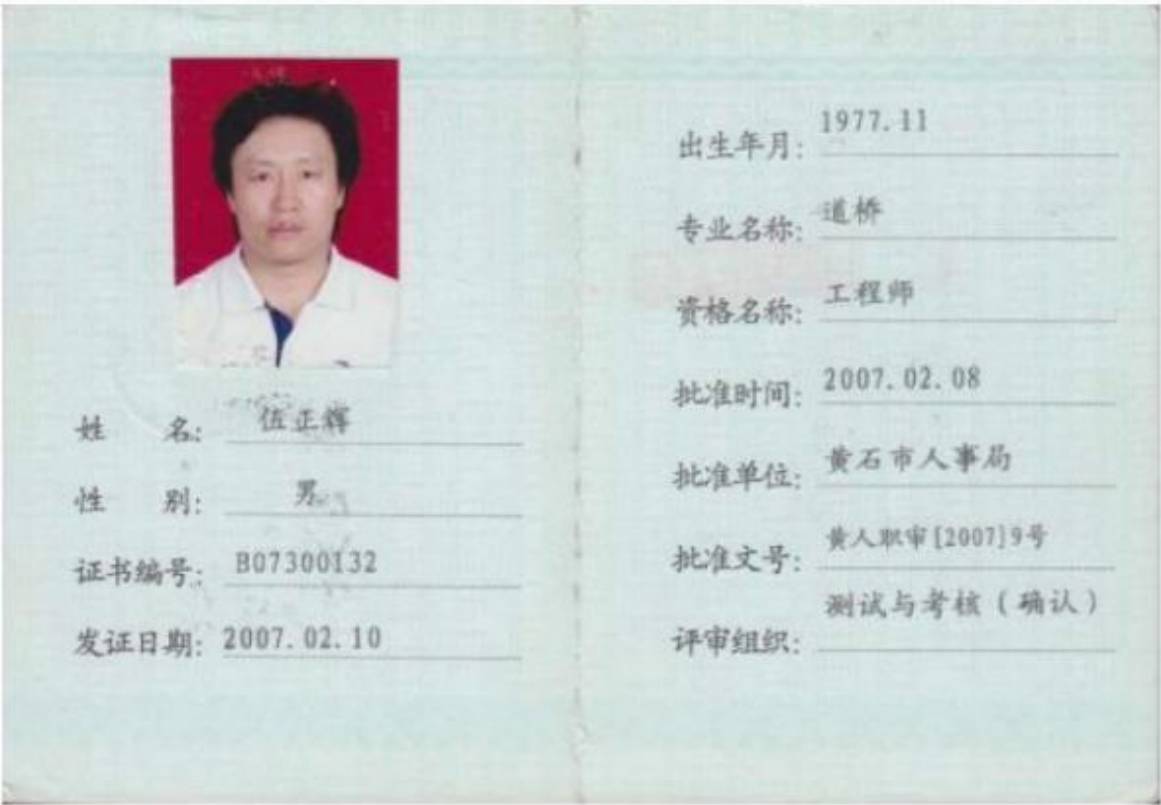 姓 名: 伍正辉
性 别: 男
证书编号: B07300132
发证日期: 2007.02.10
出生年月: 1977.11
专业名称: 道桥
资格名称: 工程师
批准时间: 2007.02.08
批准单位: 黄石市人事局
批准文号: 黄人职审[2007]9号
评审组织: 测试与考核(确认)